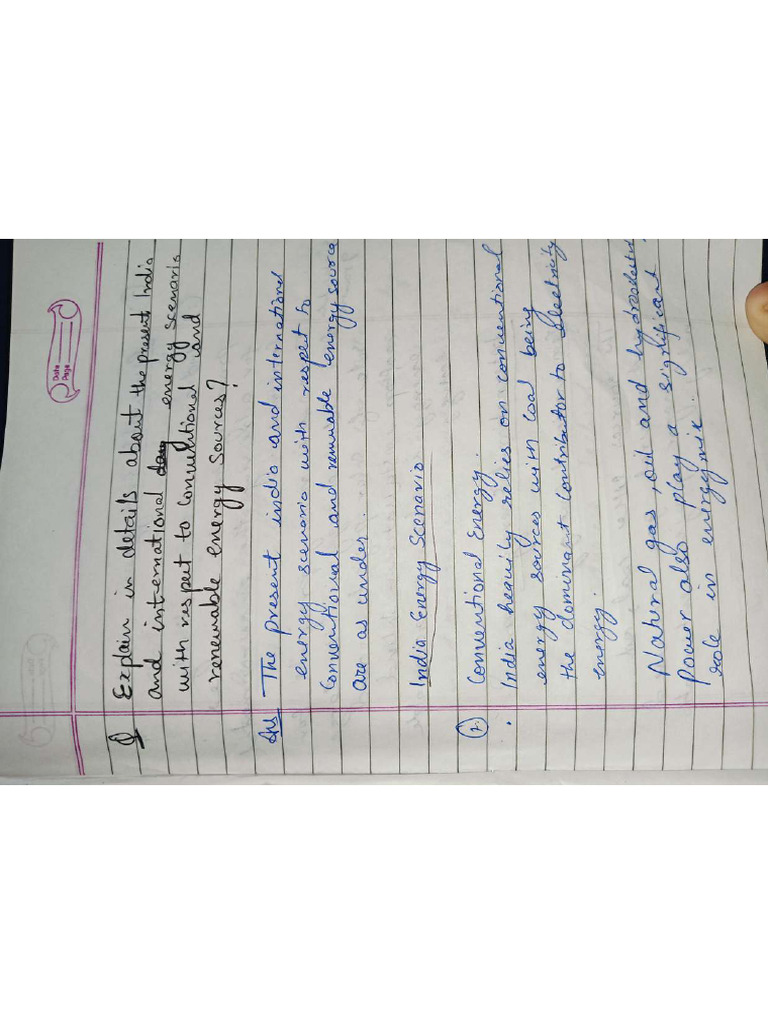 Date
Page
Q Explain in details about the present India
and international energy scenario
with respect to conventional and
renewable energy sources?
Ans The present india and international
energy scenario with respect to
conventional and renewable energy source
are as under.
India Energy Scenario
Conventional Energy.
• India heavily relies on conventional
energy sources with coal being
the dominant contributor to electricity
energy.
Natural gas, oil and
Power also play a significant
role in energy mix.